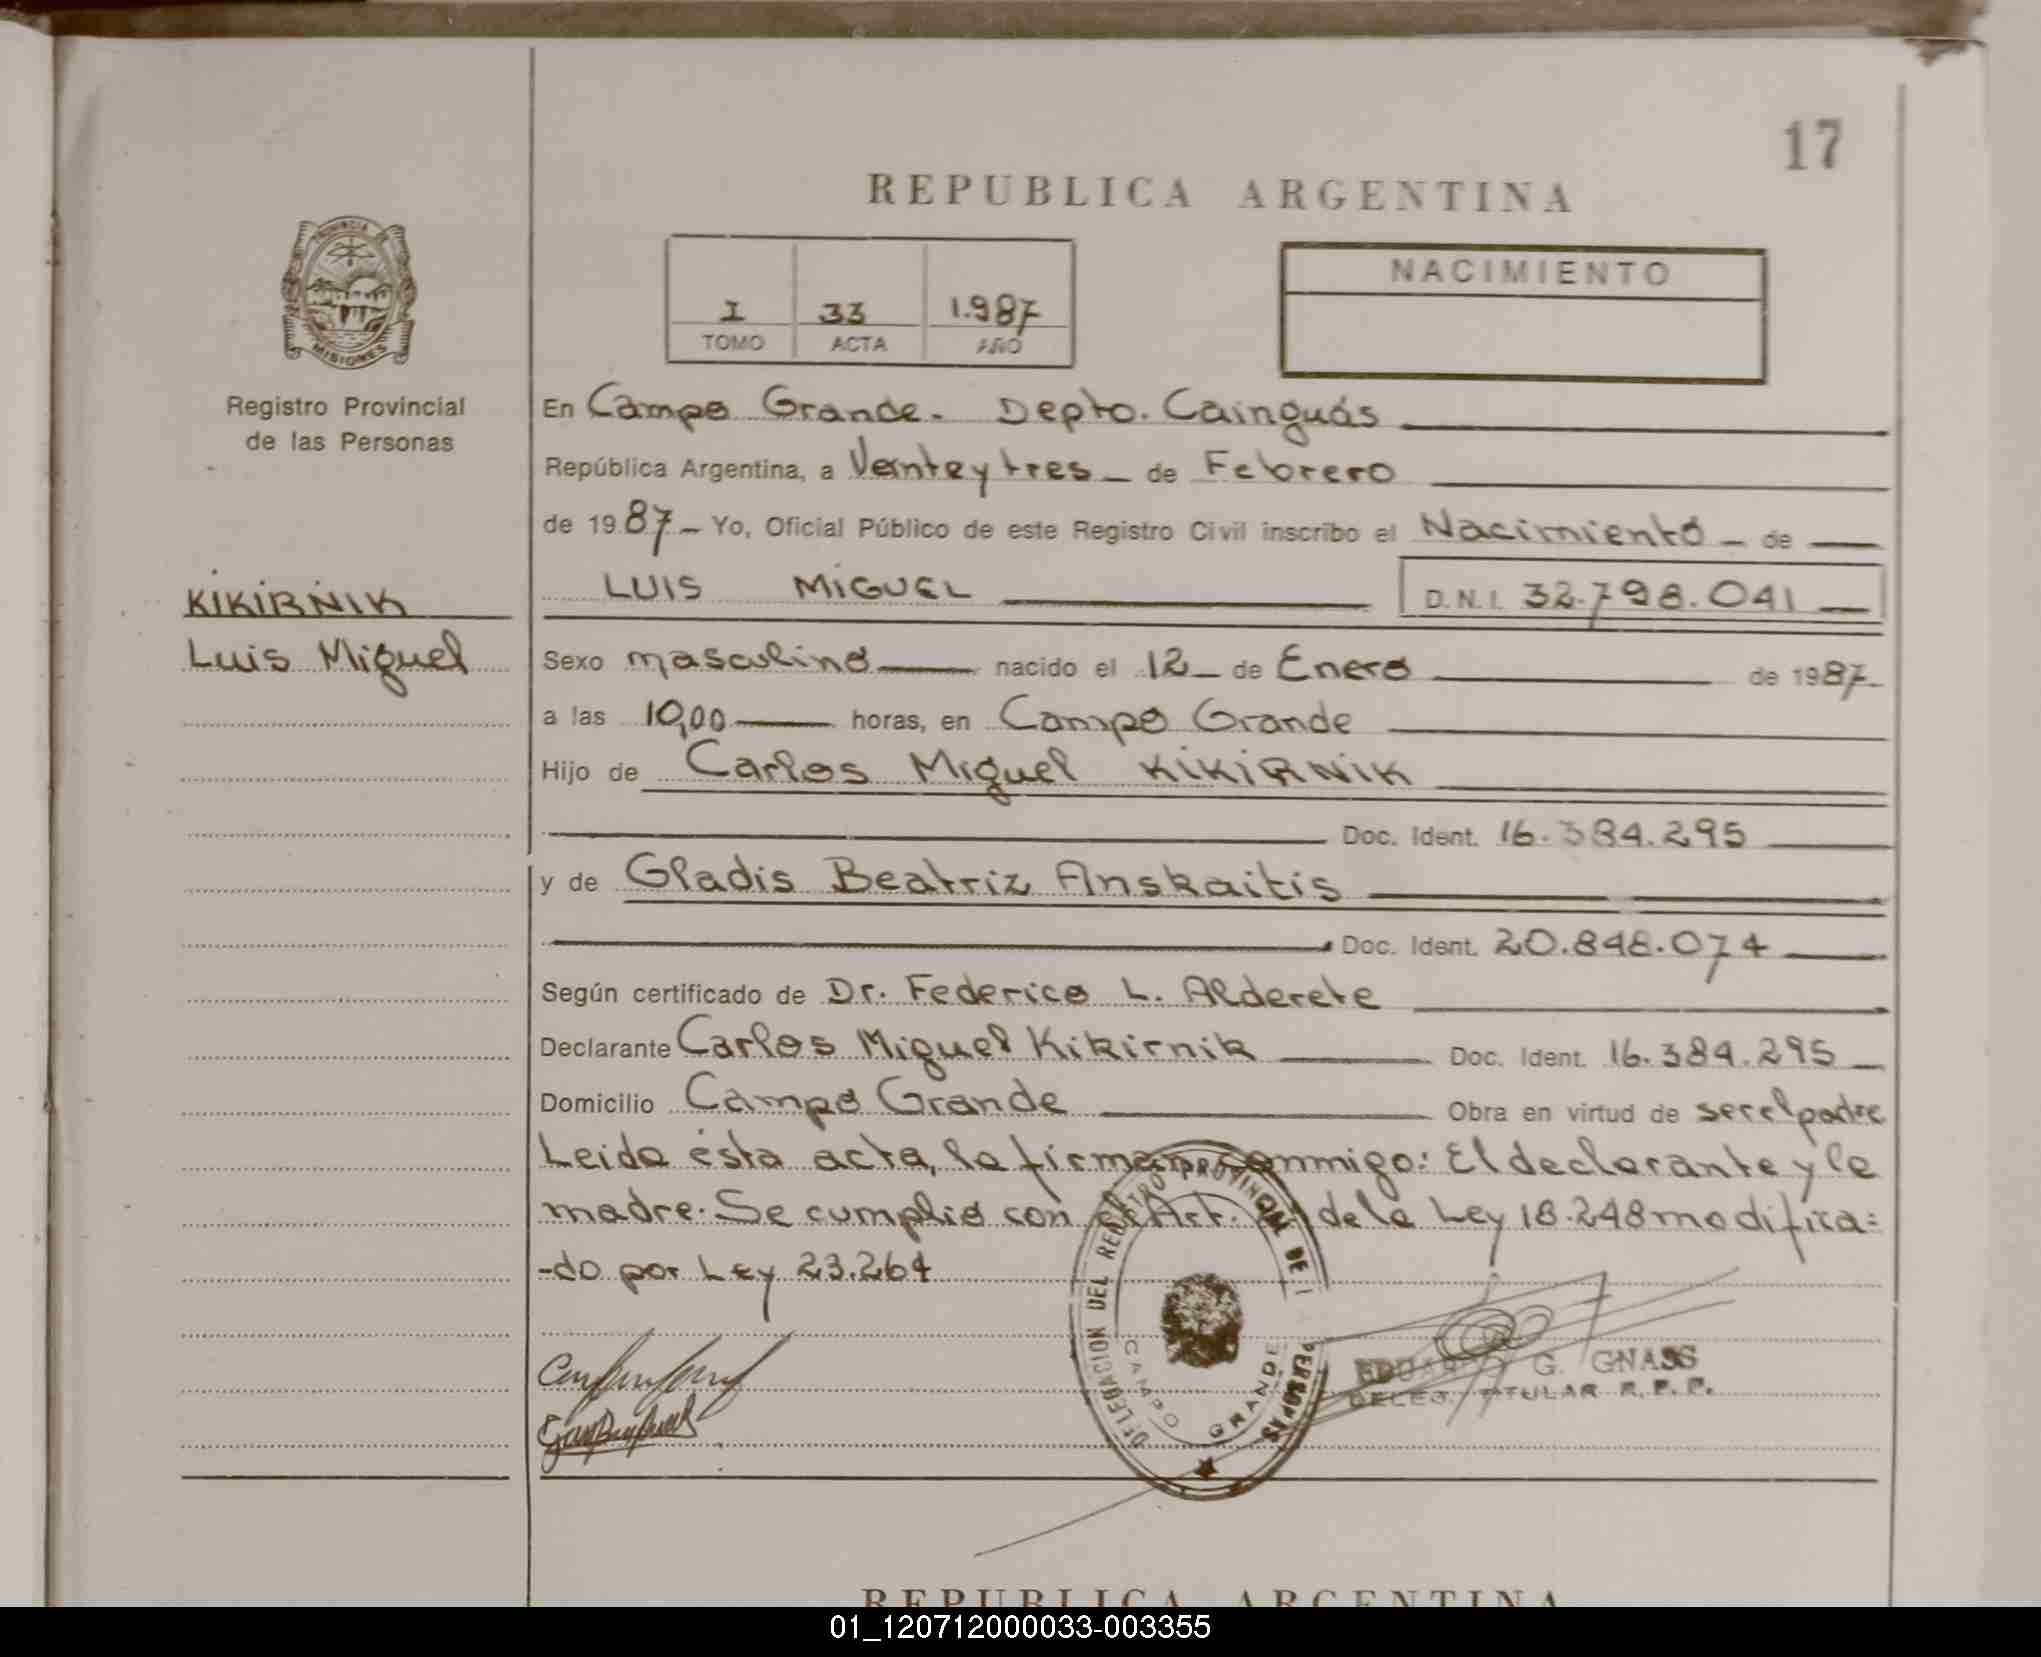 17
REPUBLICA ARGENTINA
PROVINCIA DE
MISIONES
I 33 1.987
TOMO ACTA AÑO
NACIMIENTO
Registro Provincial
de las Personas
En Campo Grande. Depto. Cainguás
República Argentina, a Veinteytres de Febrero
de 1987 Yo, Oficial Público de este Registro Civil inscribo el Nacimiento de
LUIS MIGUEL D.N.I. 32.798.041
KIKIRNIK
Luis Miguel
Sexo masculino nacido el 12 de Enero de 1987
a las 10,00 horas, en Campo Grande
Hijo de Carlos Miguel KIKIRNIK
Doc. Ident. 16.384.295
y de Gladis Beatriz Anskaitis
Doc. Ident. 20.848.074
Según certificado de Dr. Federico L. Alderete
Declarante Carlos Miguel Kikirnik Doc. Ident. 16.384.295
Domicilio Campo Grande Obra en virtud de ser el padre
Leida ésta acta, la firman conmigo: El declarante y la
madre. Se cumplió con el Art. de la Ley 18.248 modifica=
-do por Ley 23.264
DELEGACION DEL REGISTRO PROVINCIAL DE PERSONAS
CAMPO GRANDE
EDUARDO G. GNASS
DELEG. TITULAR R. P. P.
REPUBLICA ARGENTINA
01_120712000033-003355